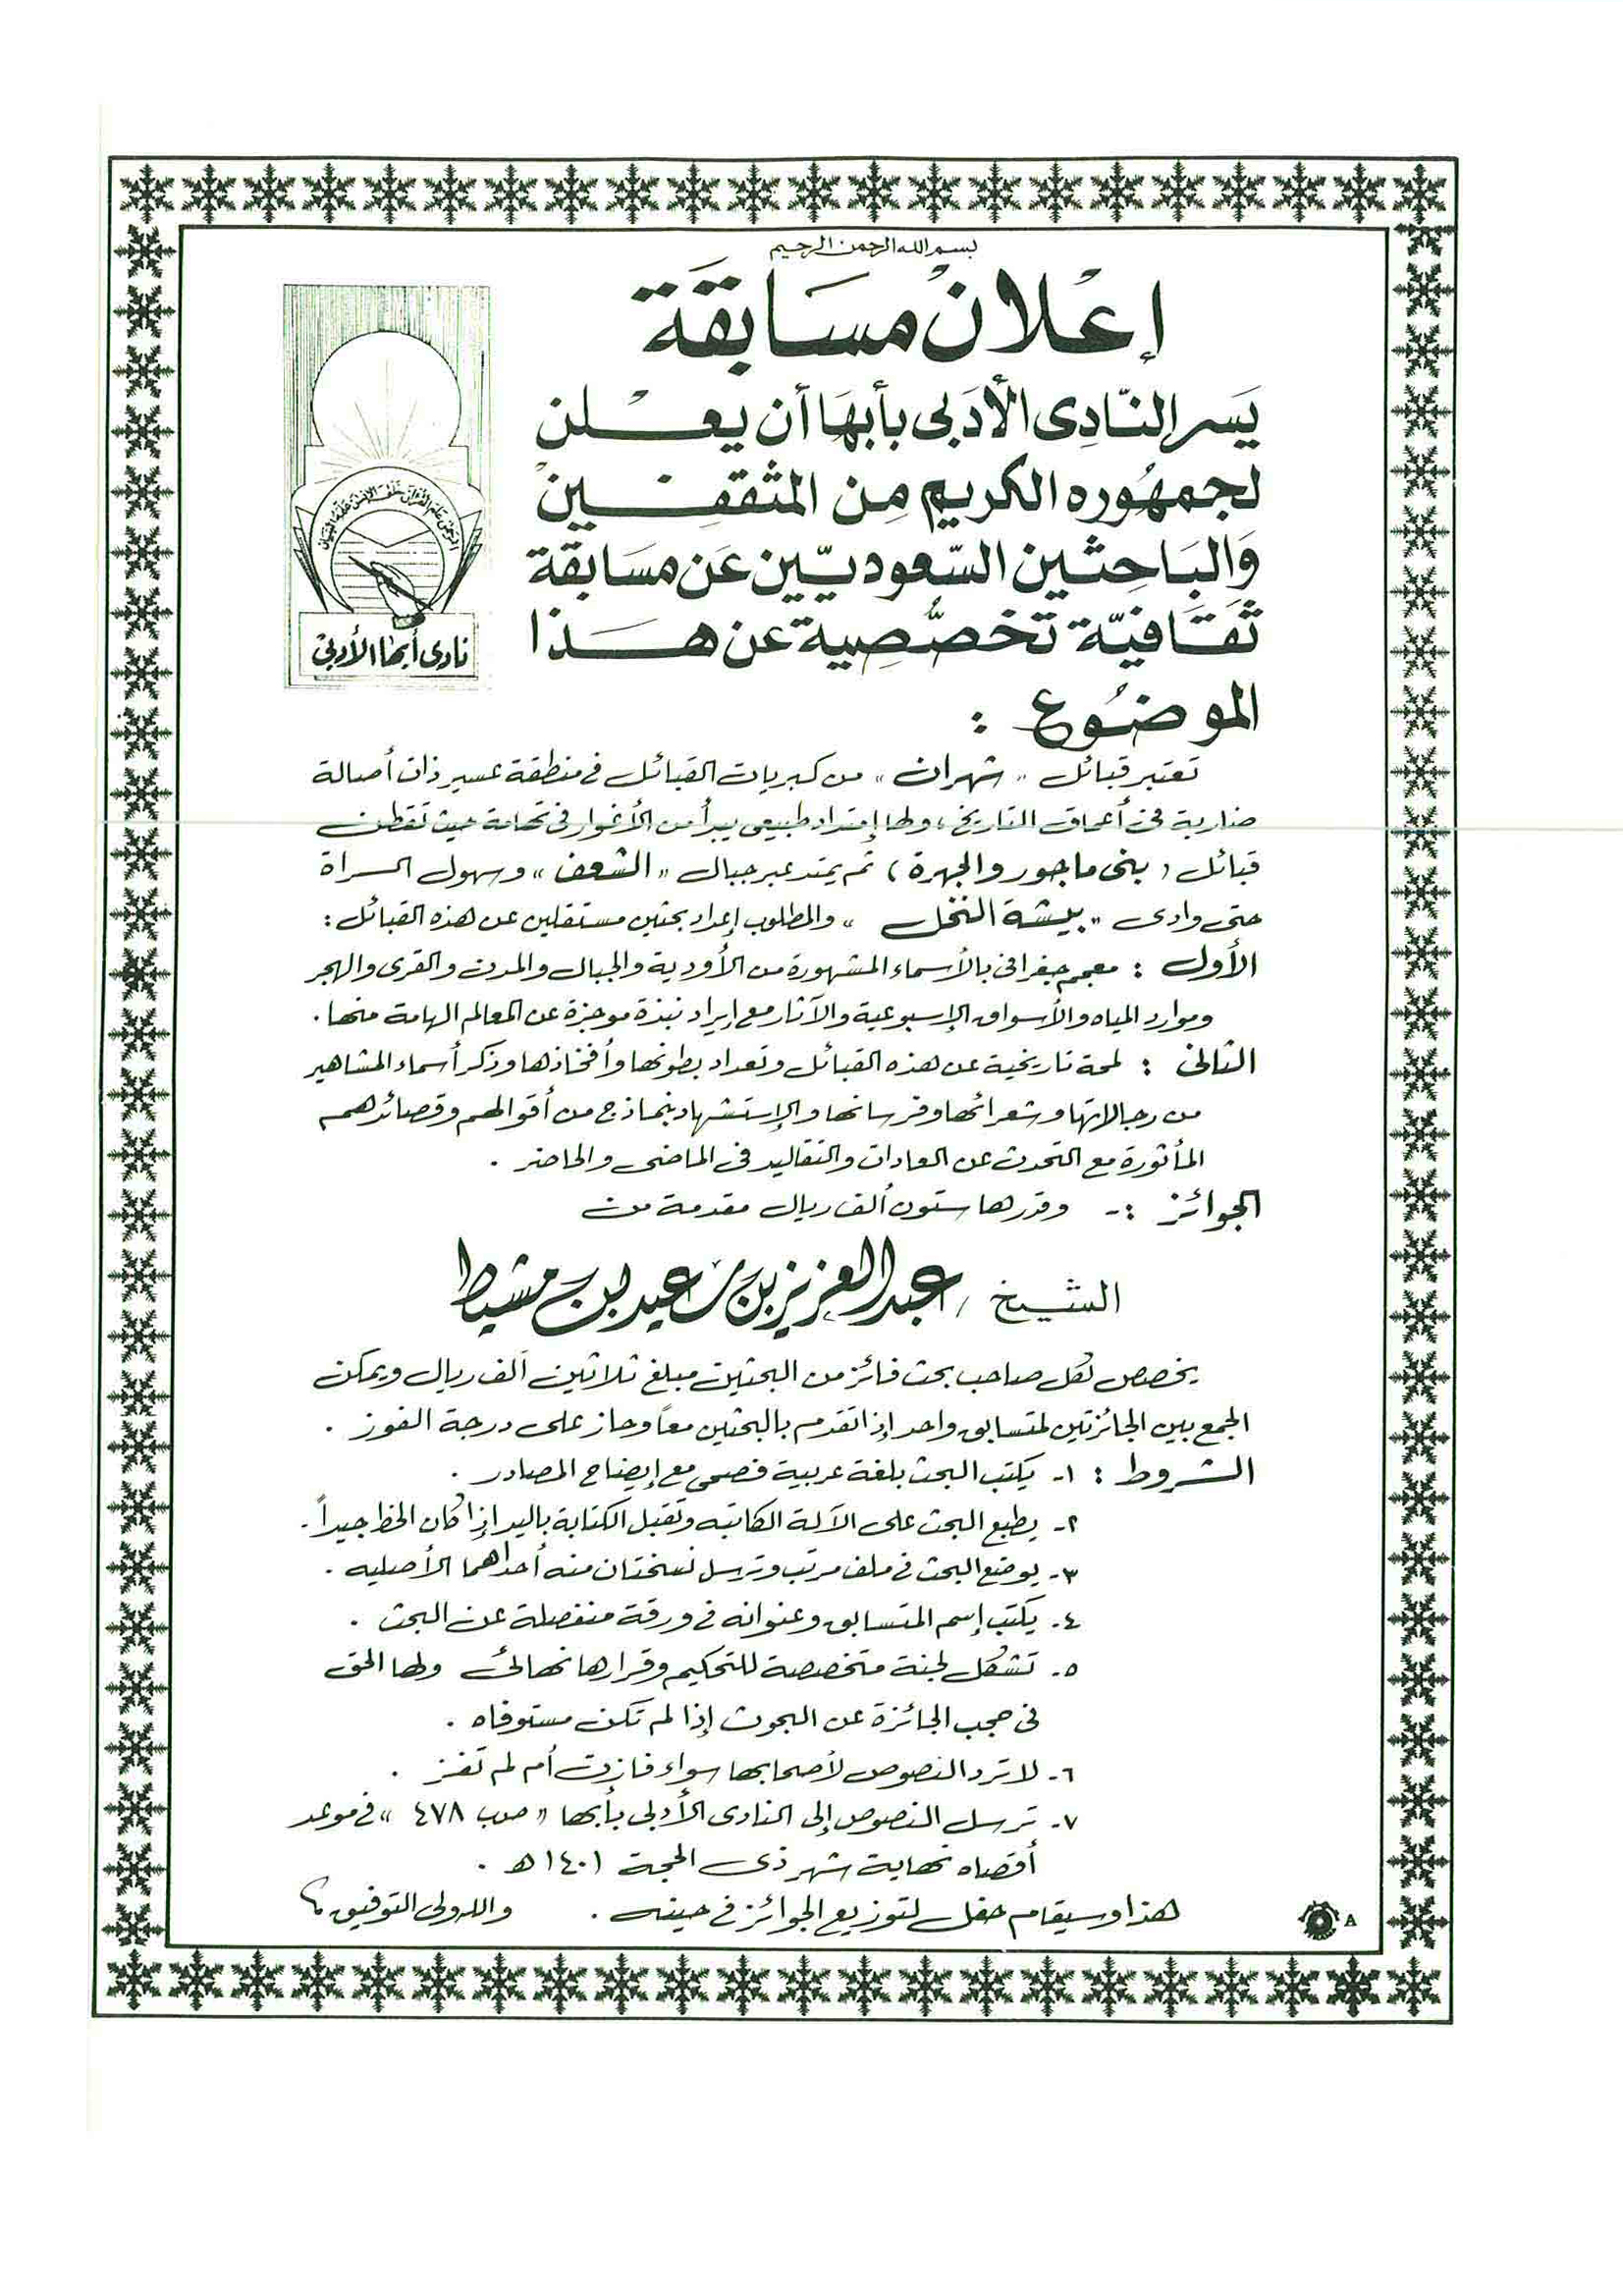 بسم الله الرحمن الرحيم
إعلان مسابقة
يسر النادى الأدبى بأبها أن يعلن
لجمهوره الكريم من المثقفين
والباحثين السعوديين عن مسابقة
ثقافية تخصصية عن هذا
الموضوع :
الرحمن علم القرآن خلق الإنسان علمه البيان
نادى أبها الأدبى
تعتبر قبائل " شهران " من كبريات القبائل فى منطقة عسير ذات أصالة
ضاربة فى أعماق التاريخ ، ولها إمتداد طبيعى يبدأ من الأغوار فى تهامة حيث تقطن
قبائل ( بنى ماجور والجهرة ) ثم يمتد عبر جبال " الشعف " وسهول السراة
حتى وادى " بيشة النخل " والمطلوب إعداد بحثين مستقلين عن هذه القبائل :
الأول : معجم جغرافى بالأسماء المشهورة من الأودية والجبال والمدن والقرى والهجر
وموارد المياه والأسواق الإسبوعية والآثار مع إيراد نبذة موجزة عن المعالم الهامة منها .
الثانى : لمحة تاريخية عن هذه القبائل وتعداد بطونها وأفخاذها وذكر أسماء المشاهير
من رجالاتها وشعرائها وفرسانها والإستشهاد بنماذج من أقوالهم وقصائدهم
المأثورة مع التحدث عن العادات والتقاليد فى الماضى والحاضر .
الجوائز :- وقدرها ستون ألف ريال مقدمة من
الشيخ / عبدالعزيز بن سعيد بن مشيط
يخصص لكل صاحب بحث فائز من البحثين مبلغ ثلاثين ألف ريال ويمكن
الجمع بين الجائزتين لمتسابق واحد إذا تقدم بالبحثين معاً وحاز على درجة الفوز .
الشروط : ١- يكتب البحث بلغة عربية فصحى مع إيضاح المصادر .
٢- يطبع البحث على الآلة الكاتبه وتقبل الكتابة باليد إذا كان الخط جيداً .
٣- يوضع البحث فى ملف مرتب وترسل نسختان منه أحداهما الأصليه .
٤- يكتب إسم المتسابق وعنوانه فى ورقة منفصلة عن البحث .
٥- تشكل لجنة متخصصة للتحكيم وقرارها نهائى ولها الحق
فى حجب الجائزة عن البحوث إذا لم تكن مستوفاه .
٦- لا ترد النصوص لأصحابها سواء فازت أم لم تفز .
٧- ترسل النصوص إلى النادى الأدبى بأبها " ص ب ٤٧٨ " فى موعد
أقصاه نهاية شهر ذى الحجة ١٤٠١ هـ .
هذا وسيقام حفل لتوزيع الجوائز فى حينه . والله ولى التوفيق